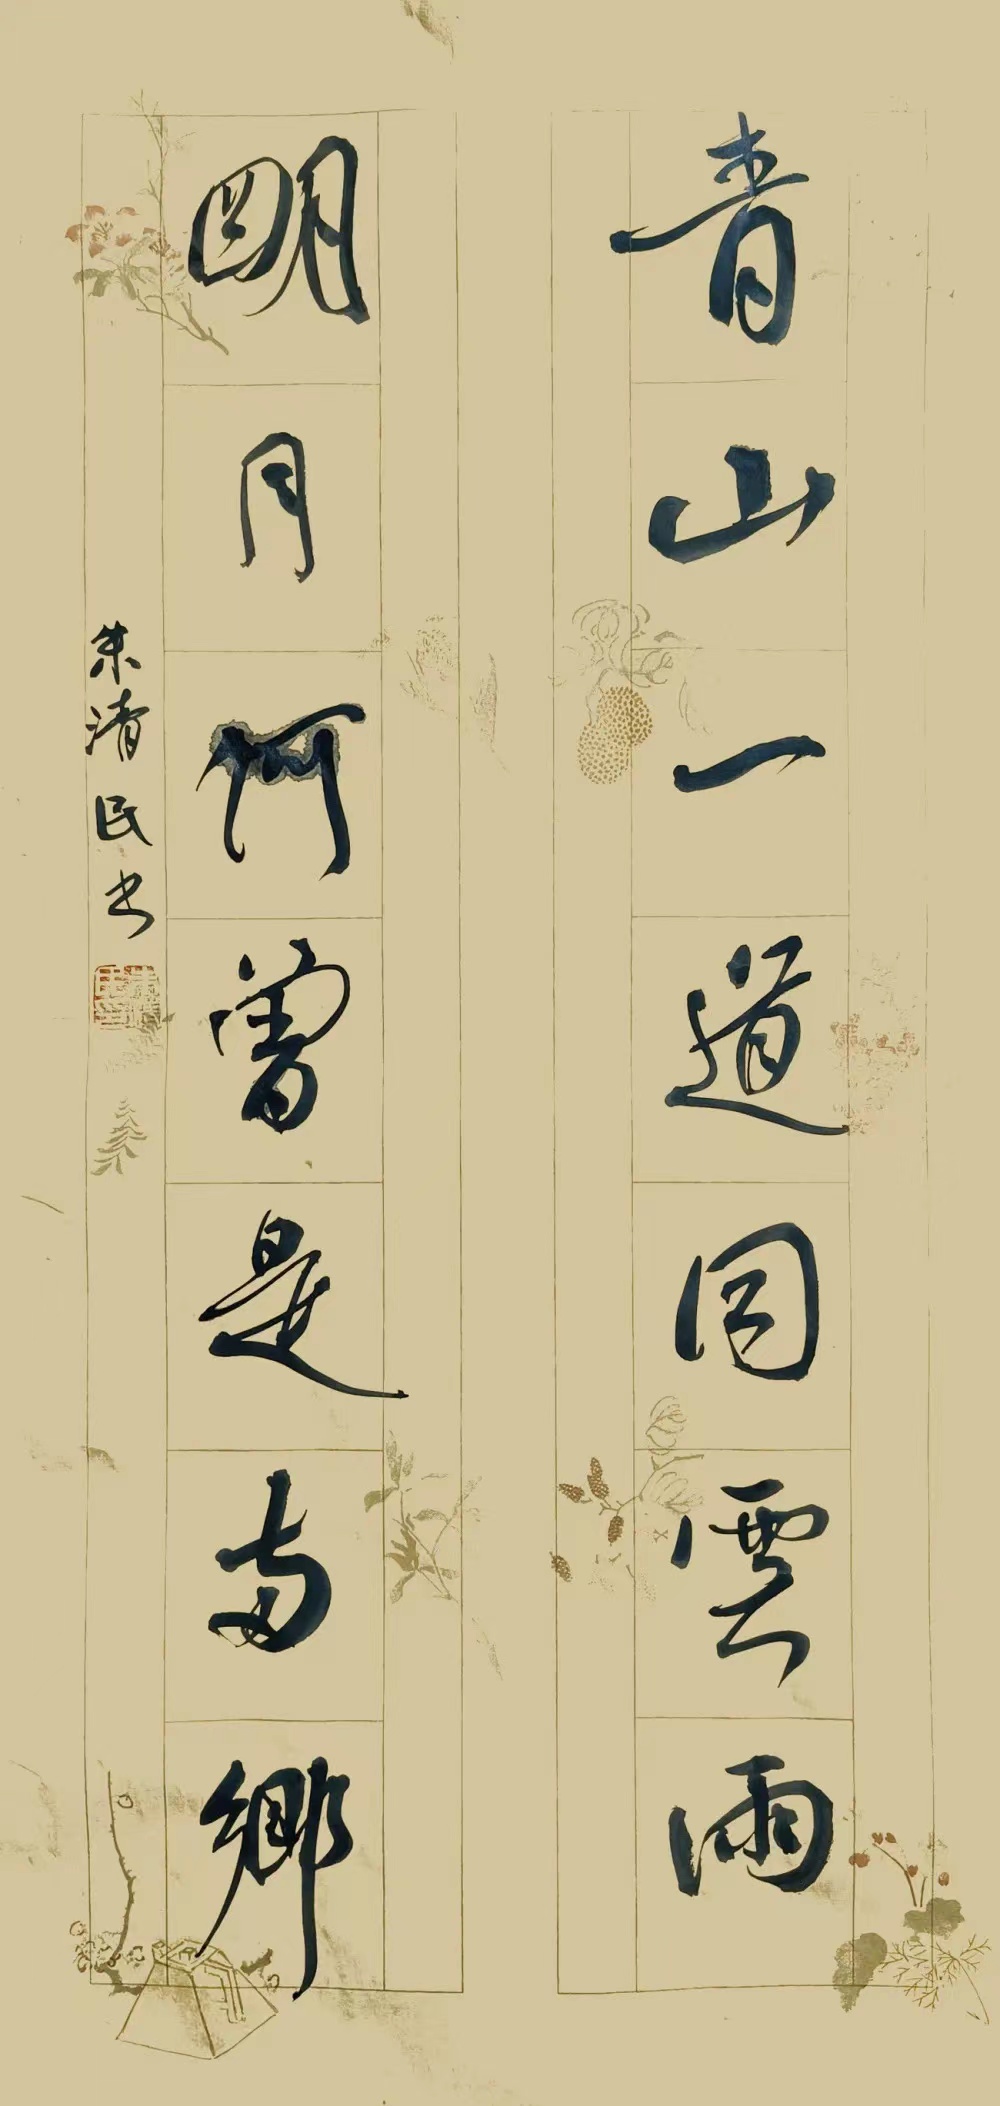 青山一道同雲雨
明月何曾是兩鄉
朱清民书